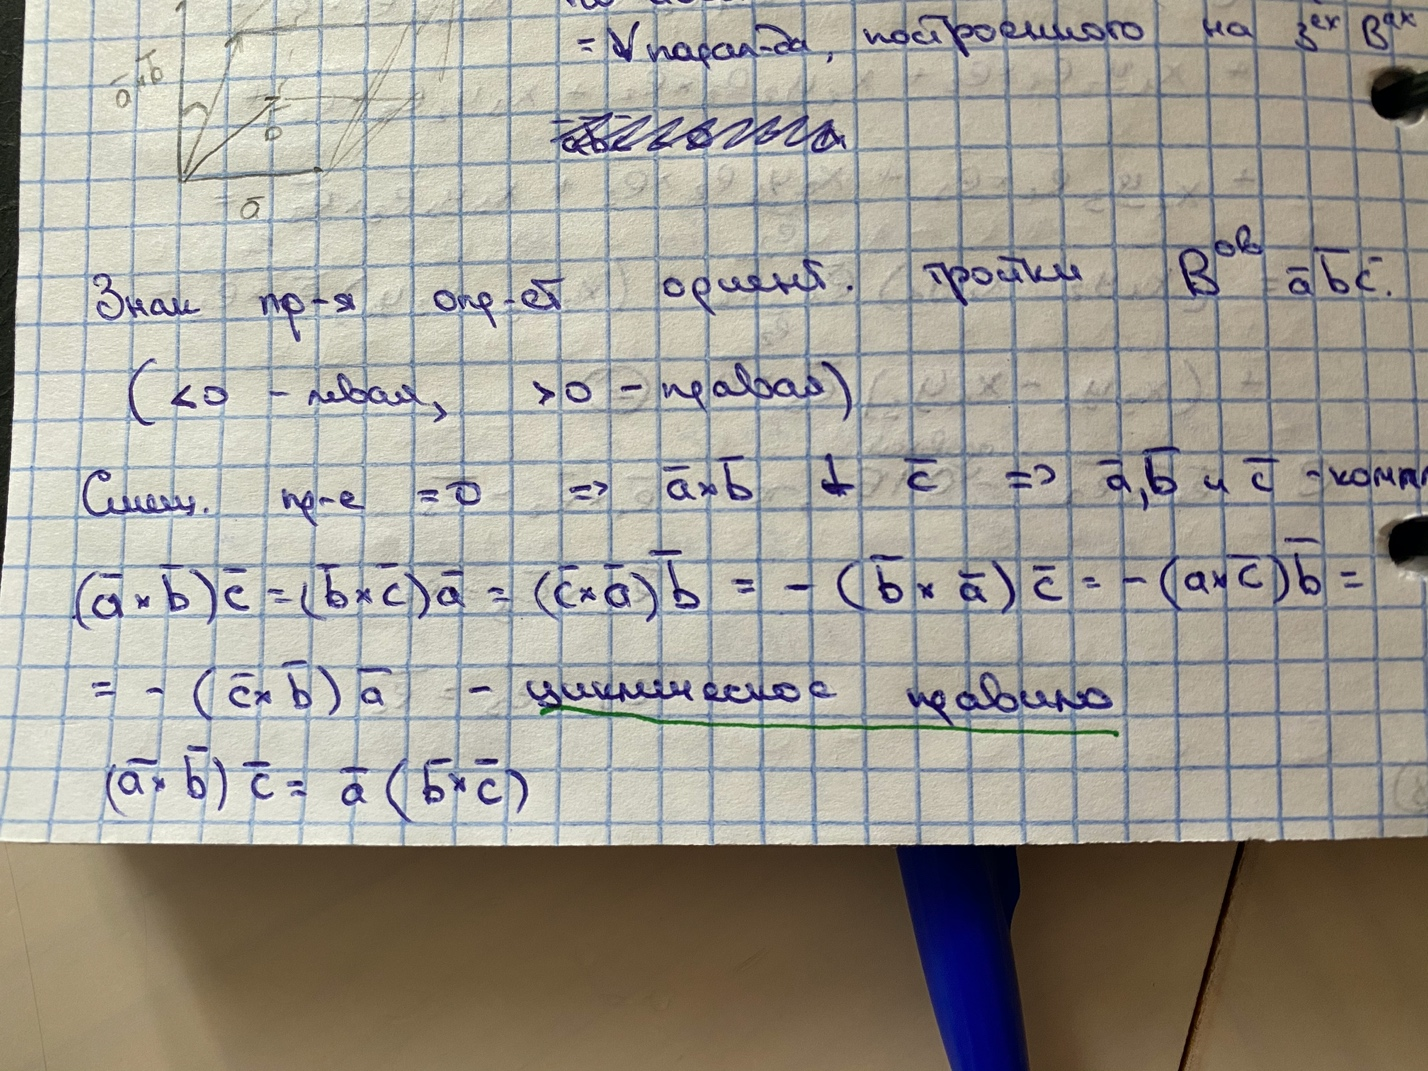 = V парал-да, построенного на 3ех Вах
a̅×b̅
b̅
a̅
Знак пр-я опр-ет ориент. тройки Вов a̅ b̅ c̅.
(<0 - левая, >0 - правая)
Смеш. пр-е = 0 => a̅×b̅ ⊥ c̅ => a̅, b̅ и c̅ - компл
(a̅×b̅)c̅ = (b̅×c̅)a̅ = (c̅×a̅)b̅ = - (b̅×a̅)c̅ = - (a×c̅)b̅ =
= - (c̅×b̅)a̅ - циклическое правило
(a̅×b̅)c̅ = a̅(b̅×c̅)